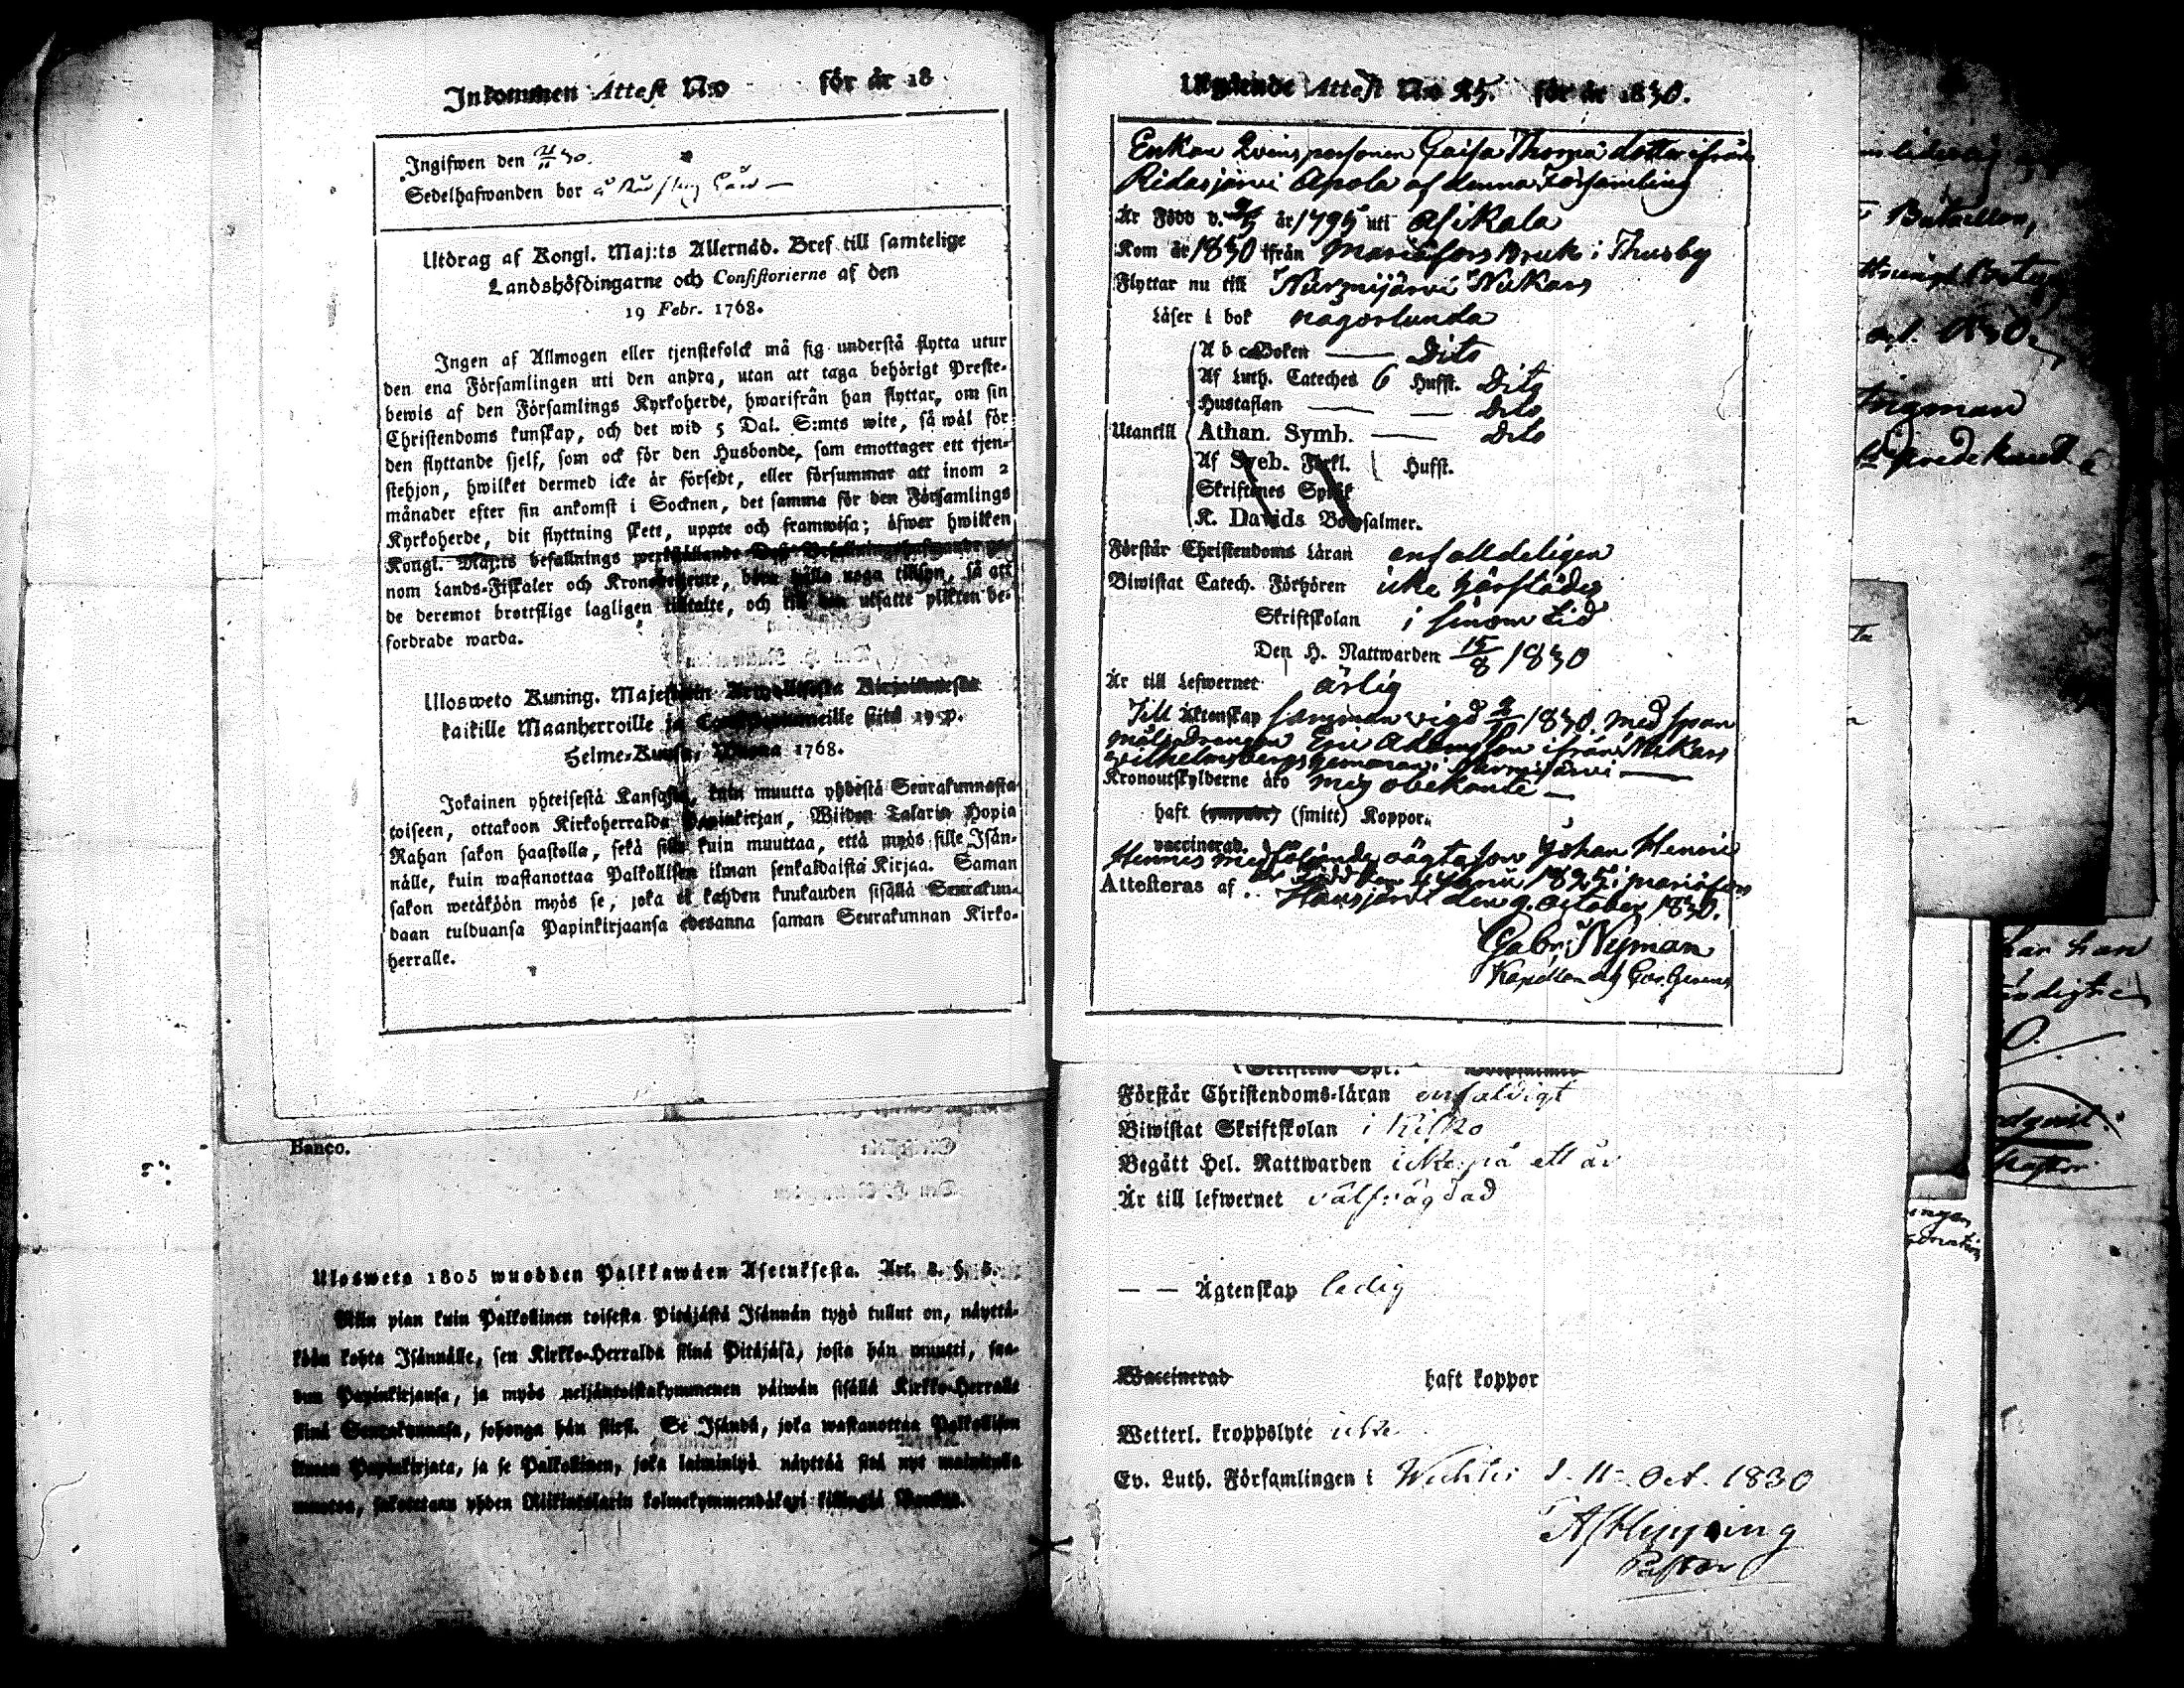 Inkommen Attest N:o för år 18
Ingifwen den
Sedelhafwanden bor å
Utdrag af Kongl. Maj:ts Allernåd. Bref till samtelige
Landshöfdingarne och Consistorierne af den
19 Febr. 1768.
Ingen af Allmogen eller tjenstefolck må sig understå flytta utur
den ena Församlingen uti den andra, utan att taga behörigt Preste-
bewis af den Församlings Kyrkoherde, hwarifrån han flyttar, om sin
Christendoms kunskap, och det wid 5 Dal. S:mts wite, så wäl för
den flyttande sjelf, som ock för den Husbonde, som emottager ett tjen-
stehjon, hwilket dermed icke är försedt, eller försummar att inom 2
månader efter sin ankomst i Socknen, det samma för den Församlings
Kyrkoherde, dit flyttning skett, uppte och framwisa; äfwer hwilken
Kongl. Maj:ts befallnings werkställande
nom Lands-Fiskaler och noga tillsyn, så att
de deremot brottslige lagligen tilltalte, och till den utsatte plikten be-
fordrade warda.
Ulosweto Kuning. Majestetin Armollisesta Kirjoituxesta
kaikille Maanherroille ja siitä 19 p.
Helme-Kuusa, Wuona 1768.
Jokainen yhteisestä Kansasta, kuin muutta yhdestä Seurakunnasta
toiseen, ottakoon Kirkoherralda Papinkirjan, Wiiden Talarin Hopia
Rahan sakon haastolla, sekä sille kuin muuttaa, että myös sille Isän-
nälle, kuin wastanottaa Palkollisen ilman senkaldaista Kirjaa. Saman
sakon wetäköön myös se, joka ei kahden kuukauden sisällä Seurakun-
daan tulduansa Papinkirjaansa edesanna saman Seurakunnan Kirko-
herralle.
Banco.
Ulosweto 1805 wuodden Palkkawäen Asetuksesta. Art. 2. §. 5.
Niin pian kuin Palkollinen toisesta Pitäjästä Isännän tygö tullut on, näyttä-
köön kohta Isännälle, sen Kirkko-Herralda siinä Pitäjäsä, josta hän muutti, saa-
dun Papinkirjansa, ja myös neljäntoistakymmenen päiwän sisällä Kirkko-Herralle
siinä Seurakunnasa, johonga hän siirsi. Se Isändä, joka wastanottaa Palkollisen
ilman Papinkirjata, ja se Palkollinen, joka laiminlyö näyttää sitä nyt mainitulla
muotoa, sakotetaan yhden Riikintalarin kolmekymmendäkaxi killingiä Bancos.
Utgående Attest N:o 25. för år 1830.
Enkan Qvinspersonen Caisa Thomä dotter ifrån
Ridasjärvi Apola af denna Församling
Är Född d. år 1795 uti Asikala
Kom år 1830 ifrån Mariæfors Bruk i Thusby
Flyttar nu till Nurmijärvi Nukars
Läser i bok någorlunda
A b c Boken Dito
Af Luth. Cateches 6 Hufst. Dito
Hustaflan Dito
Utantill Athan. Symb. Dito
Af Sveb. Förkl. Hufst.
Skriftenes Språk
K. Davids Botpsalmer.
Förstår Christendoms Läran enfalldeligen
Biwistat Catech. Förhören icke härstädes
Skriftskolan i sinom tid
Den H. Nattwarden 15/8 1830
Är till Lefwernet ärlig
Till Äktenskap 1830 med
Eric Adamsson ifrån Nukars
i Nurmijärvi
Kronoutskylderne äro mig obekante
haft (smitt) Koppor.
vaccinerad.
Hennes medföljande oägta son Johan Henric
är född den 4 Junii 1825 i Mariæfors
Attesteras af Hausjärvi den 9. October 1830.
Gabr. Nyman
Kapellan
Förstår Christendoms-läran enfaldigt
Biwistat Skriftskolan i Kisko
Begått Hel. Nattwarden icke på ett år
Är till lefwernet välfrägdad
— — Ägtenskap ledig
Vaccinerad haft koppor
Wetterl. kroppslyte icke
Ev. Luth. Församlingen i Wichtis d. 11 Oct. 1830
Pastor
Bataillon,
Ingman
har han
Pastor